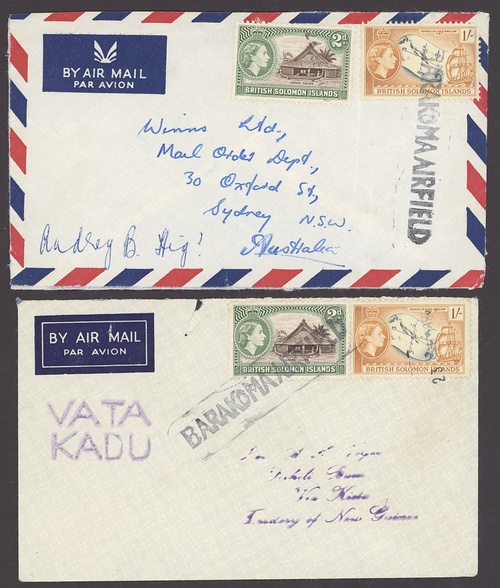 BY AIR MAIL
PAR AVION
2d
BRITISH SOLOMON ISLANDS
1/-
BRITISH SOLOMON ISLANDS
BARAKOMA AIRFIELD
Winns Ltd.,
Mail Order Dept.,
30 Oxford St,
Sydney N.S.W.
Australia
Audrey B.
BY AIR MAIL
PAR AVION
2d
BRITISH SOLOMON ISLANDS
1/-
BRITISH SOLOMON ISLANDS
BARAKOMA
VATA
KADU
Via Kieta
Territory of New Guinea